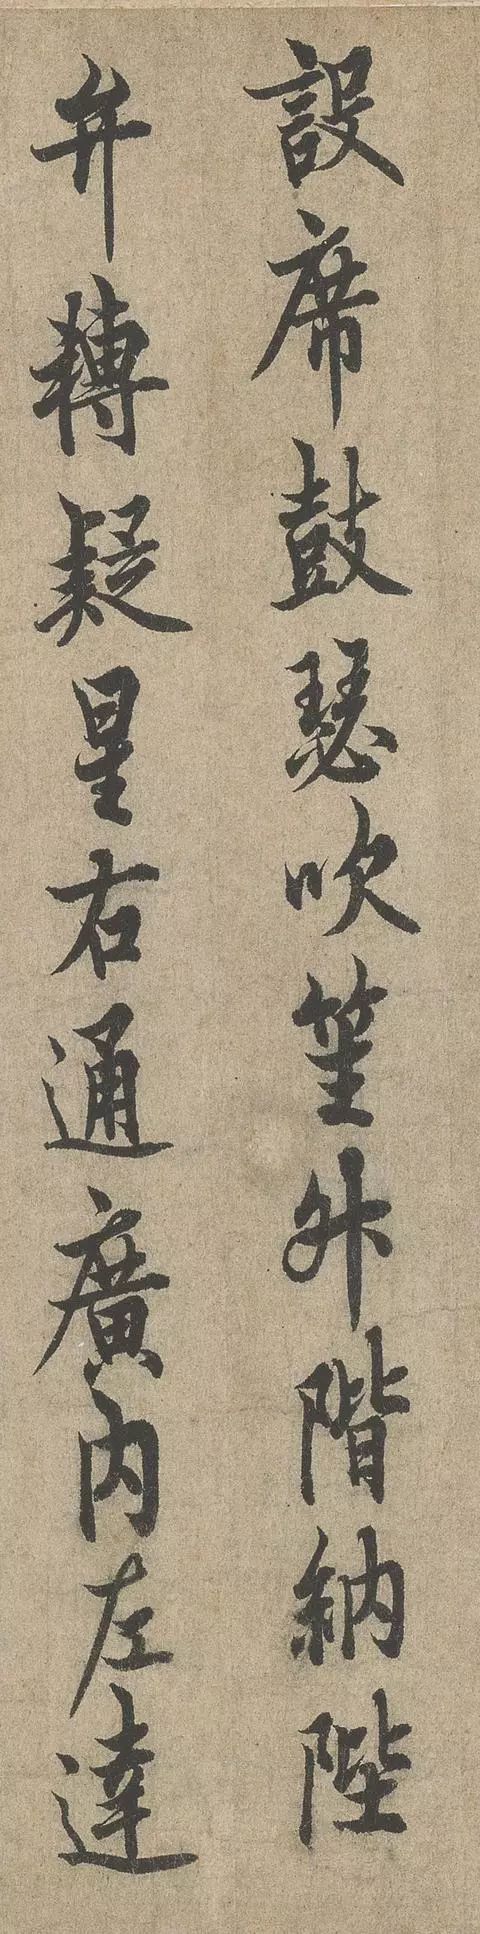 設席鼓瑟吹笙升階納陛
弁轉疑星右通廣內左達